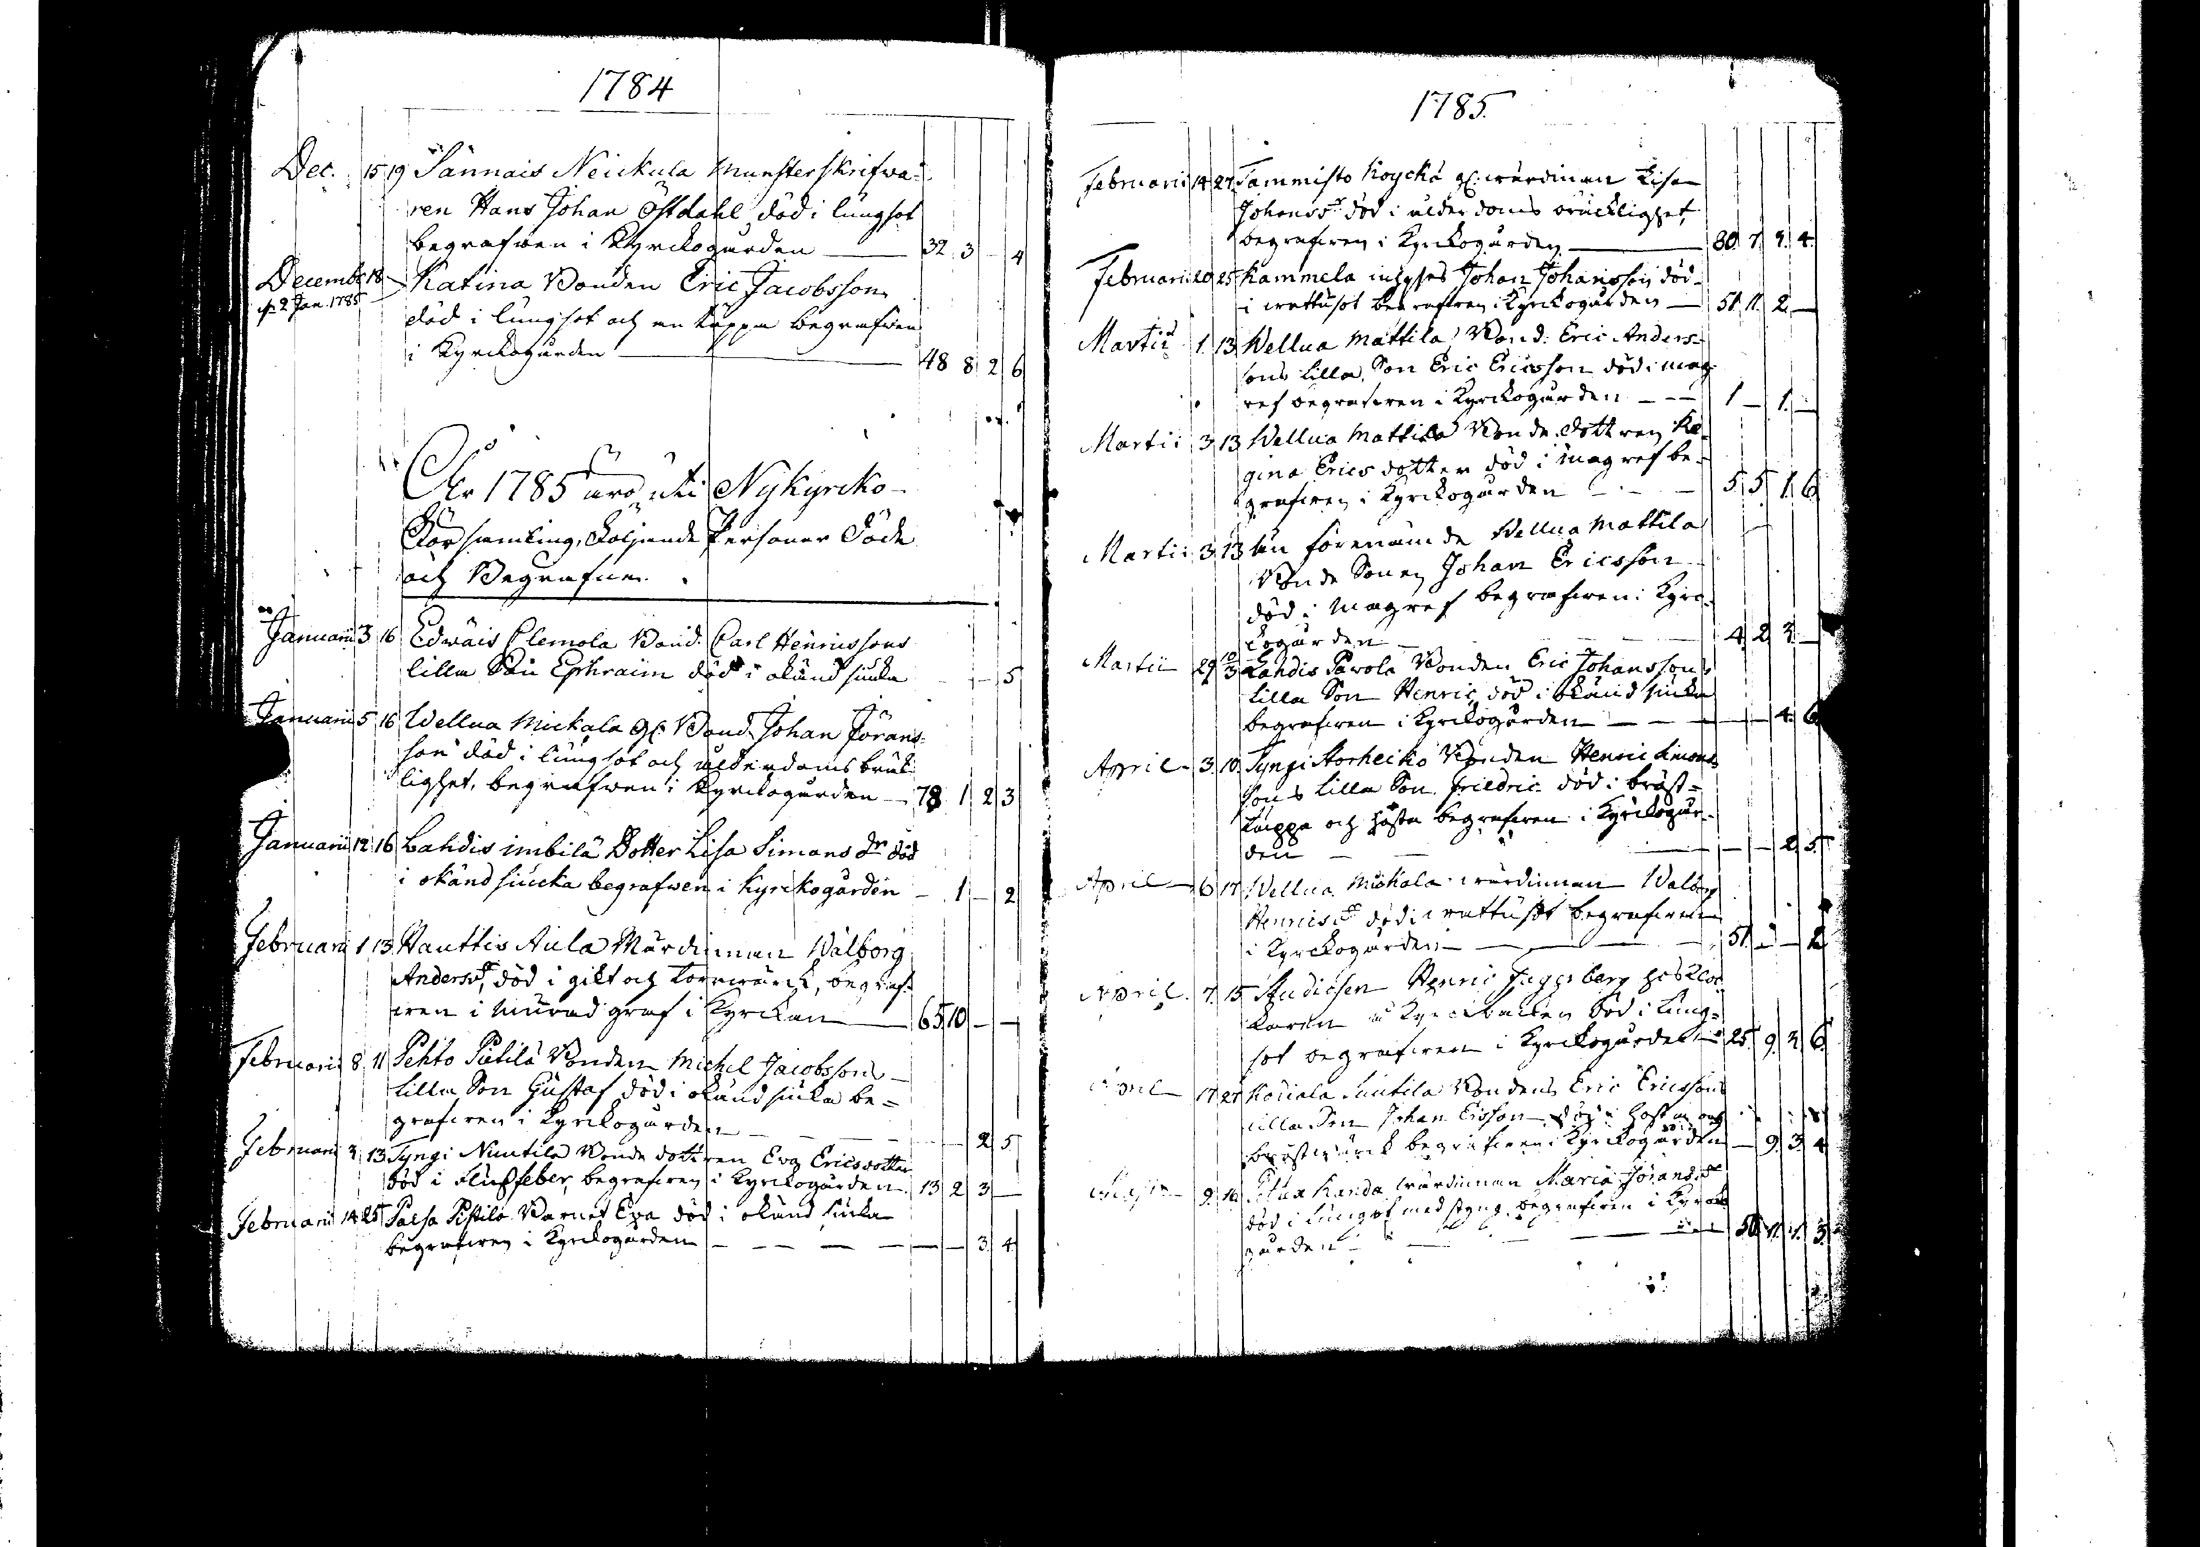 1784
Dec. 15 19 Sännäis Neickula Munsterskrifwa=
ren Hans Johan Östdahl död i lungsot
begrafwen i Kyrckogården — 32 3 - 4
Decembr 18 Katina Bonden Eric Jacobsson
2 Jan. 1785
död i lungsot och en käppa begrafwen
i Kyrckogården — 48 8 2 6
Åhr 1785 äro uti Nykyrcko
Församling, följande Personer Döde
och Begrafne.
Januarii 3 16 Edwäis Clemola Bond. Carl Henricssons
lilla Son Ephraim död i okänd siucka - - 5
Januarii 5 16 Wellua Mickala gl. Bond. Johan Jörans=
son död i lungsot och ålderdoms bräck
lighet, begrafwen i Kyrckogården — 78 1 2 3
Januarii 12 16 Lahdis imbilä Dotter Lisa Simons dr död
i okänd siucka begrafwen i Kyrckogården - 1 - 2
Februarii 1 13 Hauttis Aula Wärdinnan Walborg
Andersdr, död i gikt och torrwärck, begraf=
wen i murad graf i Kyrckan — 65 10 - -
Februarii 8 11 Pehto Pietilä Bonden Michel Jacobssons
lilla Son Gustaf död i okänd siucka be=
grafwen i Kyrckogården — 2 5
Februarii 3 13 Tyngi Nuutila Bonde dottren Eva Ericsdotter
död i Flussfeber, begrafwen i Kyrckogården 13 2 3 —
Februarii 14 25 Palsa Pistilä Barnet Eva död i okänd siucka
begrafwen i Kyrckogården — — — — 3 4
1785.
Februarii 14 27 Tammisto Koycka gl. wärdinnan Lisa
Johansdr död i ålderdoms bräcklighet,
begrafwen i Kyrckogården — 80 7 2 4
Februarii 20 25 Kammela inhyses Johan Johansson död
i wattusot begrafwen i Kyrckogården — 51 11 2 —
Martii 1 13 Wellua Mattila Bond. Eric Anders=
sons lilla Son Eric Ericsson död i mag
ref begrafwen i Kyrckogården - - - 1 - 1 -
Martii 3 13 Wellua Mattila Bonde dottren Re
gina Ericsdotter död i magref be=
grafwen i Kyrckogården — 5 5 1 6
Martii 3 13 Ur förenämnde Wellua Mattila
Bonde Sonen Johan Ericsson
död i magref begrafwen i Kyrc
kogården — 4 2 3 —
Martii 29 10/3 Lahdis Pärola Bonden Eric Johanssons
lilla Son Henric, död i okänd siucka
begrafwen i Kyrckogården — — — — 4 6
April 3 10 Tyngi Storheicko Bonden Henric Simons
sons lilla Son Friedric död i bröst=
käppa och hosta begrafwen i Kyrckogår=
den — — — — 2 5
April 6 17 Wellua Mickola wärdinnan Walborg
Henricsdr död i wattusot begrafwen
i Kyrckogården — 51 - - 2
April 7 15 Studiosen Henric Jägerberg hos Kloc
karen å Kyrckbacken död i Lung=
sot begrafwen i Kyrckogården 25 9 2 6
April 17 27 Koriala Suutila Bondens Eric Ericssons
lilla Son Johan Ersson död i hosta och
bröstwärck begrafwen i Kyrckogården — 9 3 4
9 14 Kanda wärdinnan Maria Jöransdr
död i lungsot med styng, begrafwen i Kyrcko
gården — 50 11 1 3